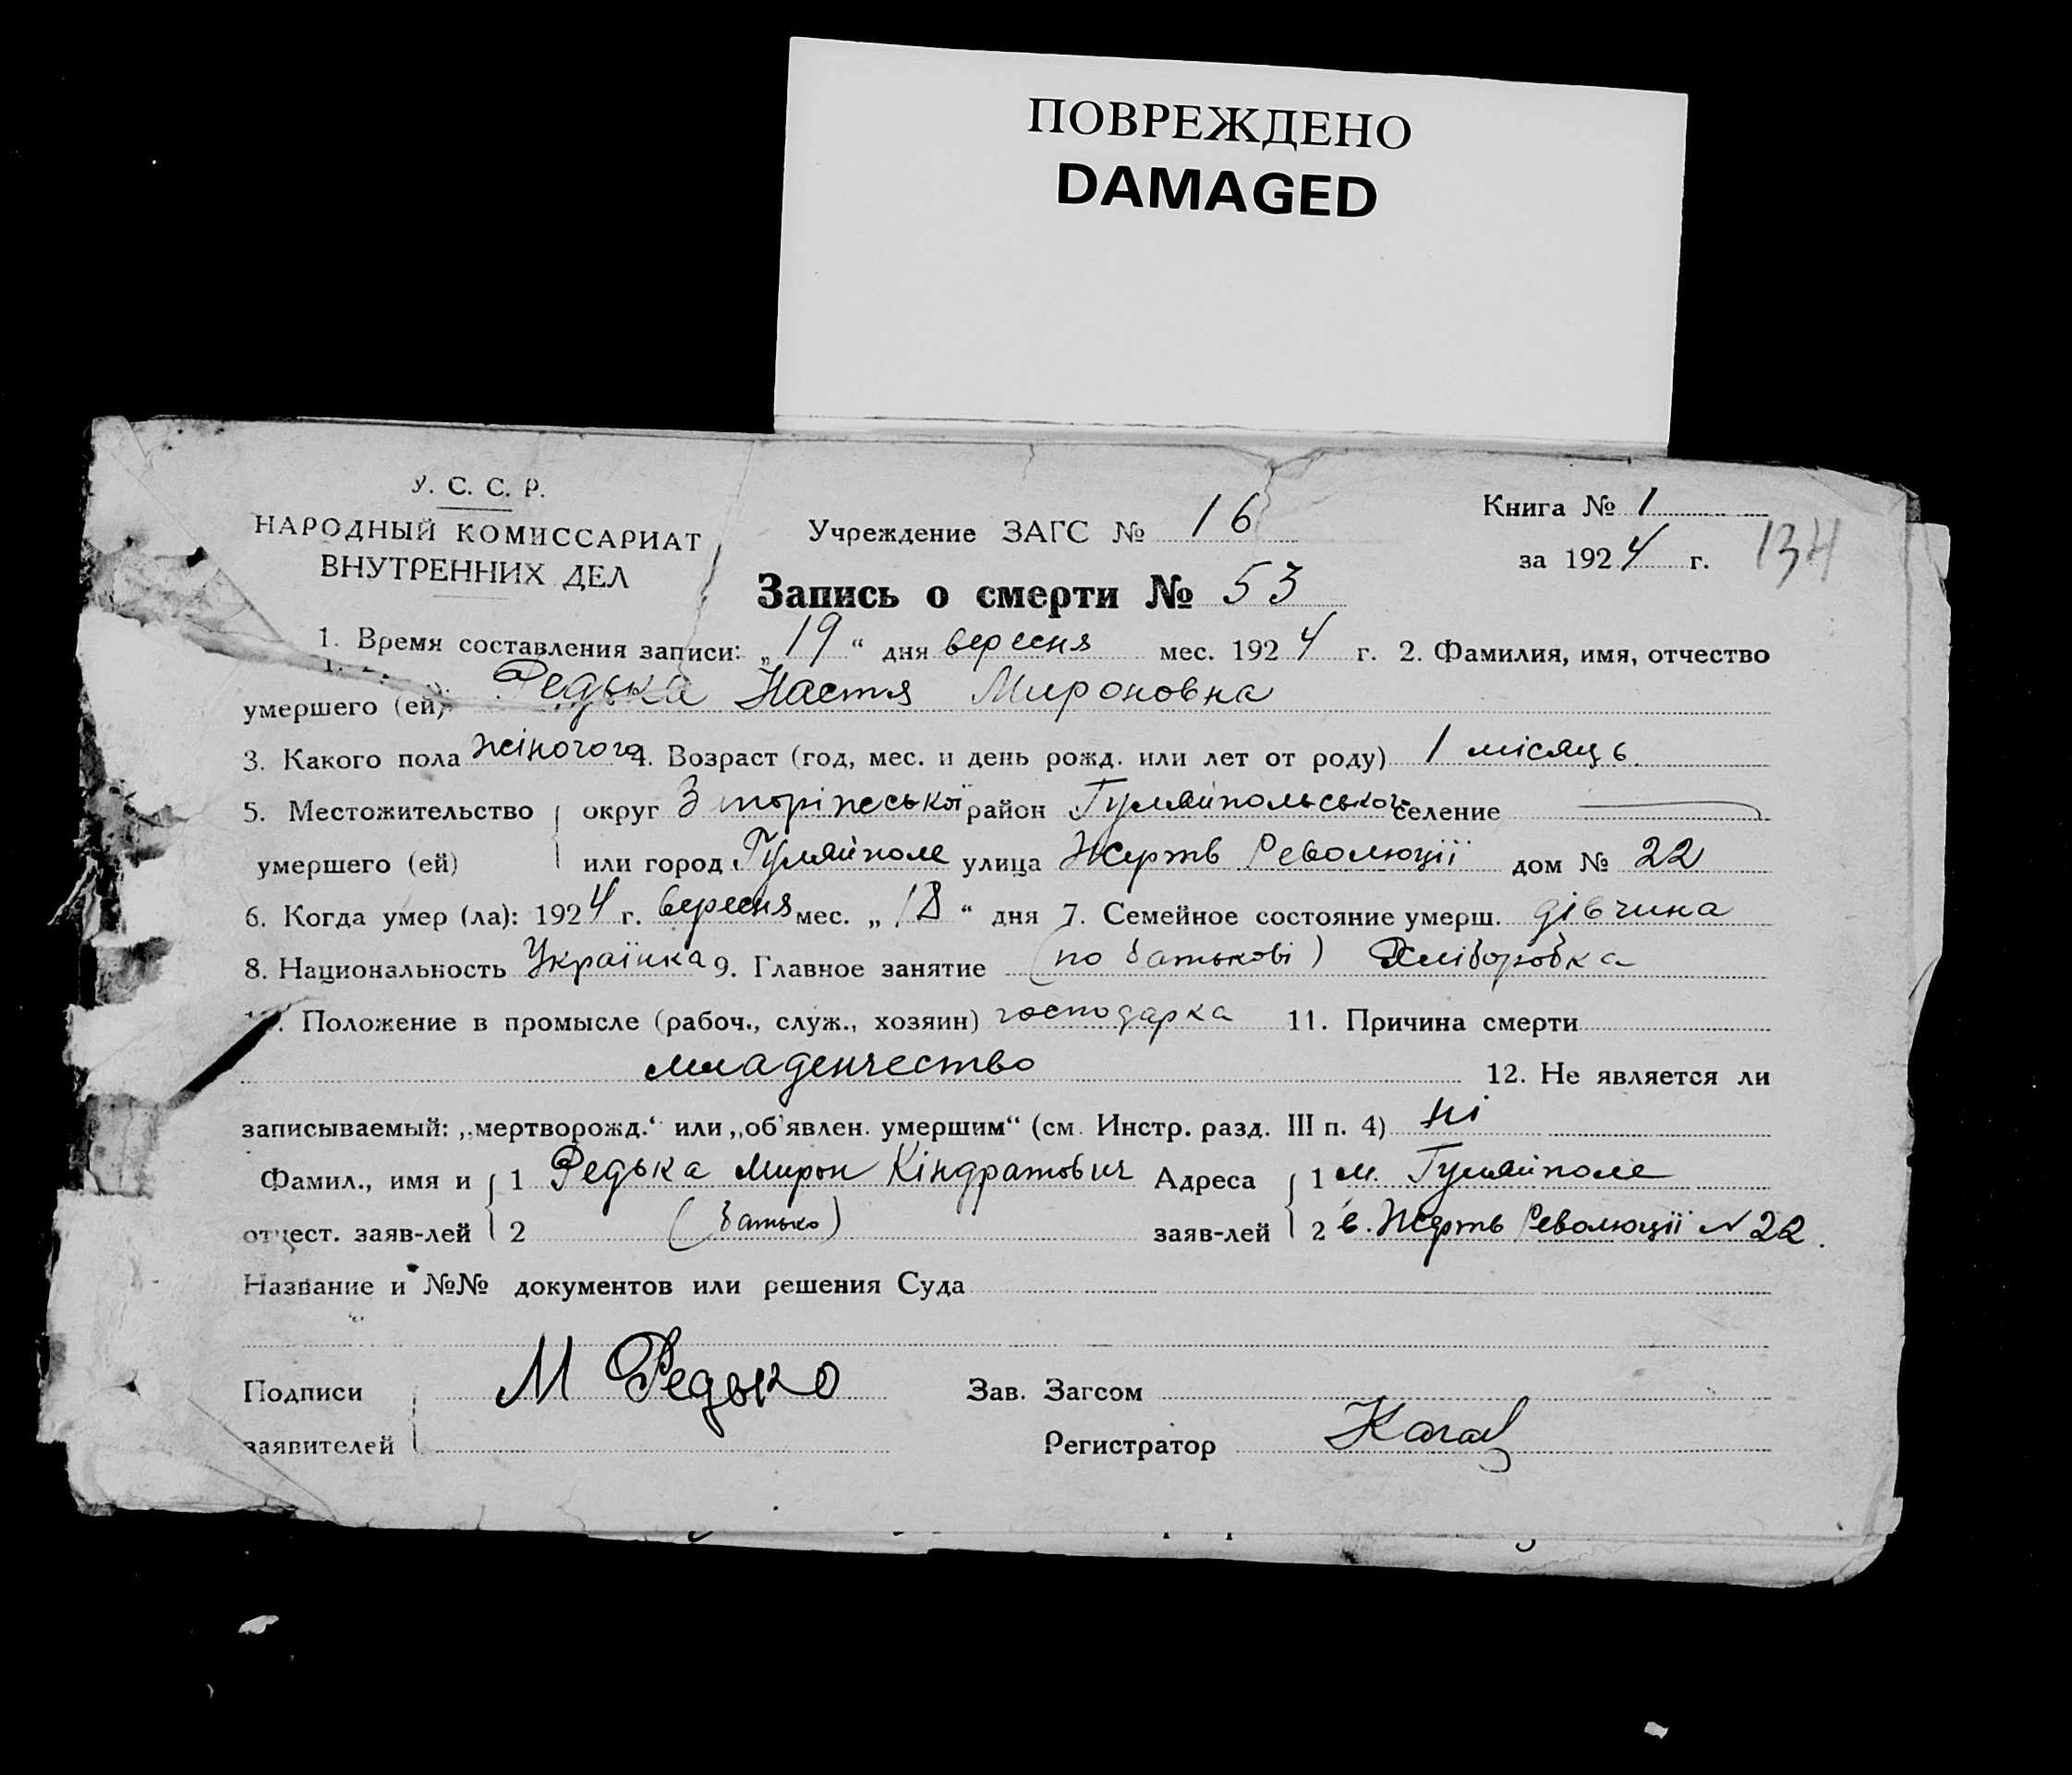 ПОВРЕЖДЕНО
DAMAGED
У. С. С. Р.
НАРОДНЫЙ КОМИССАРИАТ
ВНУТРЕННИХ ДЕЛ
Учреждение ЗАГС № 16
Книга № 1
за 1924 г. 134
Запись о смерти № 53
1. Время составления записи: „19“ дня вересня мес. 1924 г. 2. Фамилия, имя, отчество
умершего (ей). Редька Настя Мироновна
3. Какого пола жіночого 4. Возраст (год, мес. и день рожд. или лет от роду) 1 місяць.
5. Местожительство округ район Гуляйпольськог селение
умершего (ей) или город Гуляйполе улица Жертв Революції дом № 22
6. Когда умер (ла): 1924 г. вересня мес. „18“ дня 7. Семейное состояние умерш. дівчина
8. Национальность Українка 9. Главное занятие (по батькові) Хліборобка
. Положение в промысле (рабоч., служ., хозяин) господарка 11. Причина смерти
младенчество 12. Не является ли
записываемый: „мертворожд.“ или „об'явлен. умершим“ (см. Инстр. разд. III п. 4) ні
Фамил., имя и 1 Редька Мирон Кіндратович Адреса 1 м. Гуляйполе
отчест. заяв-лей 2 (батько) заяв-лей 2 в. Жертв Революції N 22.
Название и №№ документов или решения Суда
Подписи М Редько Зав. Загсом
заявителей Регистратор